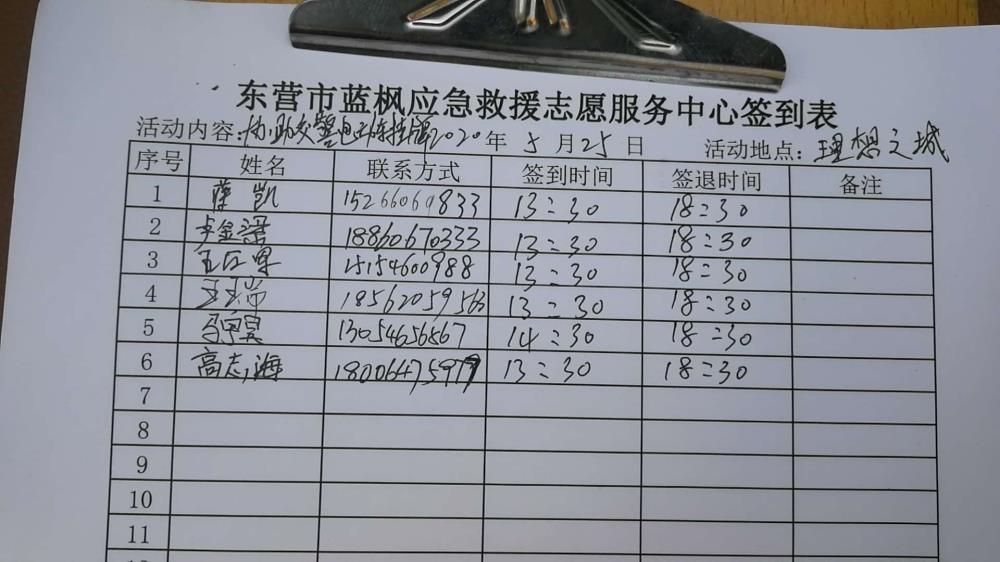 东营市蓝枫应急救援志愿服务中心签到表
活动内容:协助交警电动车挂牌2020年5月25日 活动地点:理想之城
序号 姓名 联系方式 签到时间 签退时间 备注
1 薛凯 15266069833 13:30 18:30
2 18860670333 13:30 18:30
3 15154600988 13:30 18:30
4 18562059563 13:30 18:30
5 13054656867 14:30 18:30
6 高志海 18006475977 13:30 18:30
7
8
9
10
11